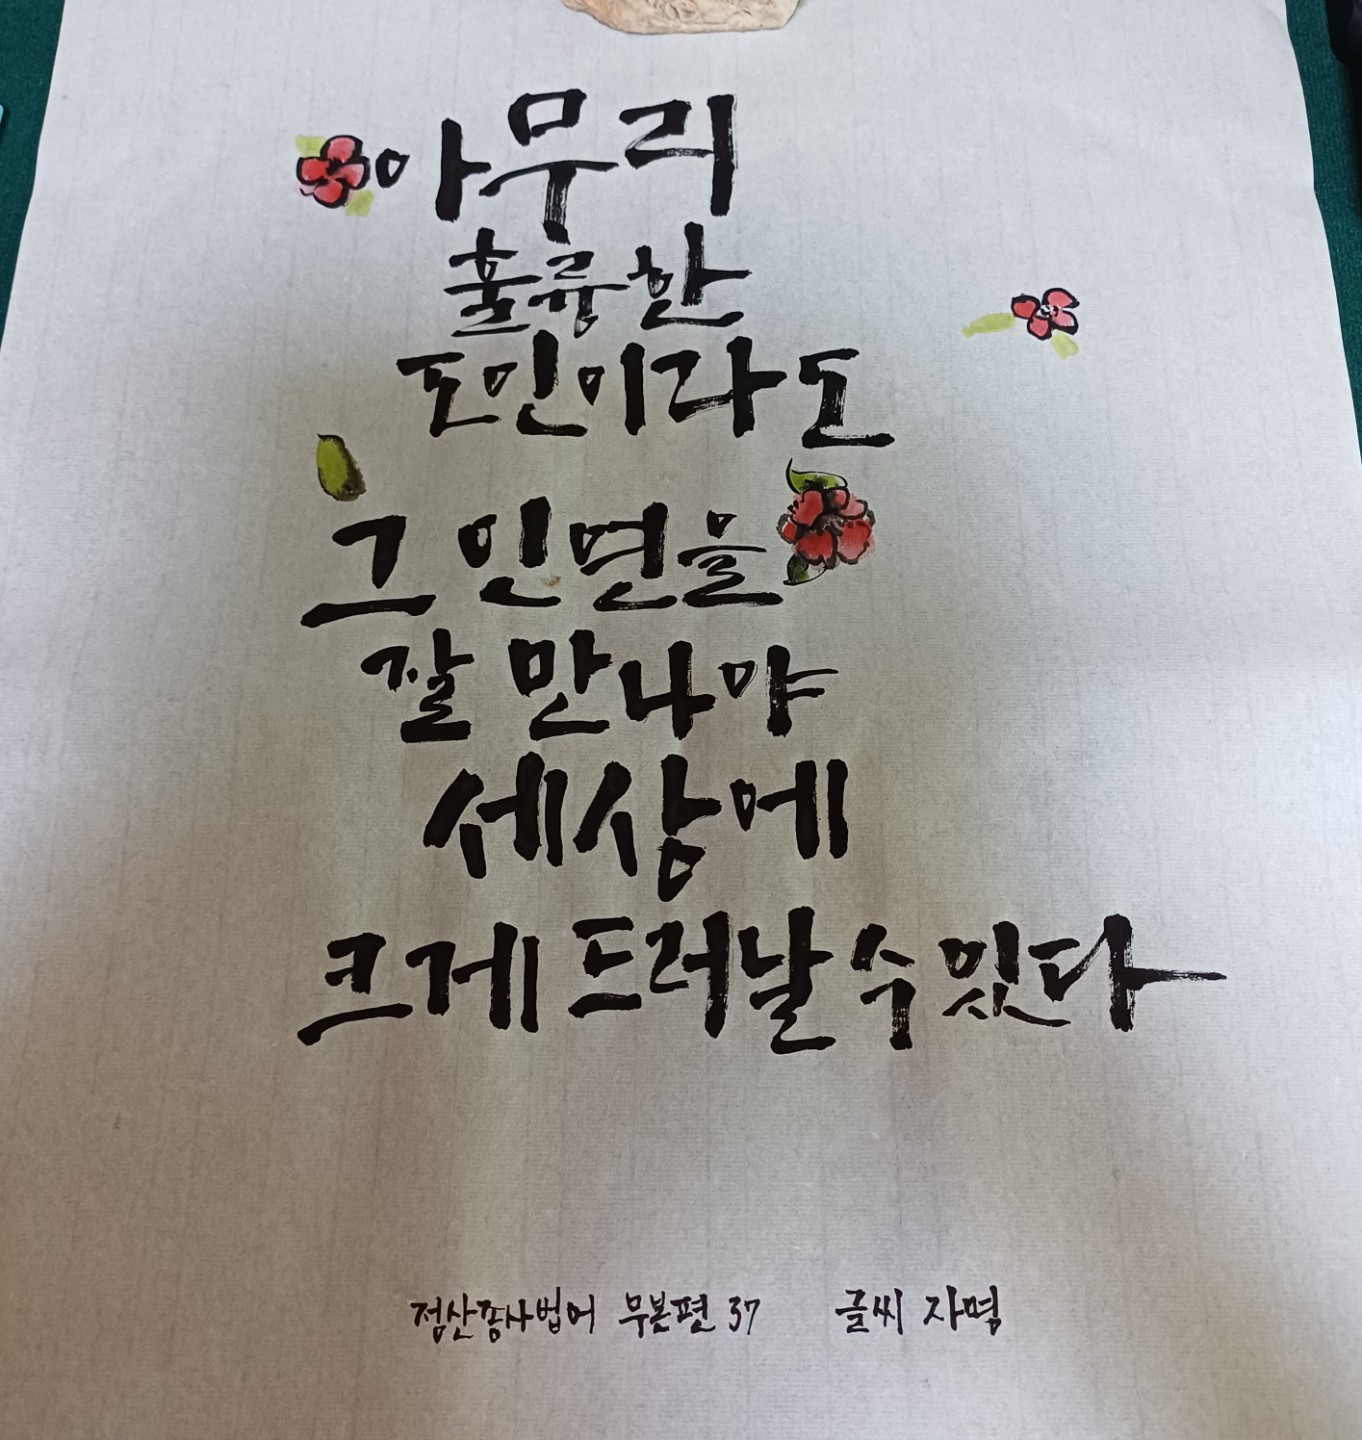 아무리
훌륭한
도인이라도
그 인연을
잘 만나야
세상에
크게 드러날 수 있다
정산종사법어 무본편 37 글씨 자명